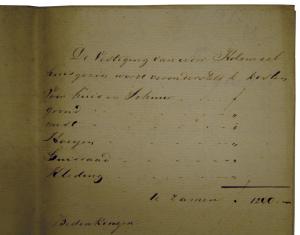 De Vestiging van een Kolonist
huisgezin wordt verondersteld te kosten
Voor huis en Schuur f
grond "
mest "
Koeijen "
Huisraad "
Kleding "
te zamen f 1200.-
Bedenkingen